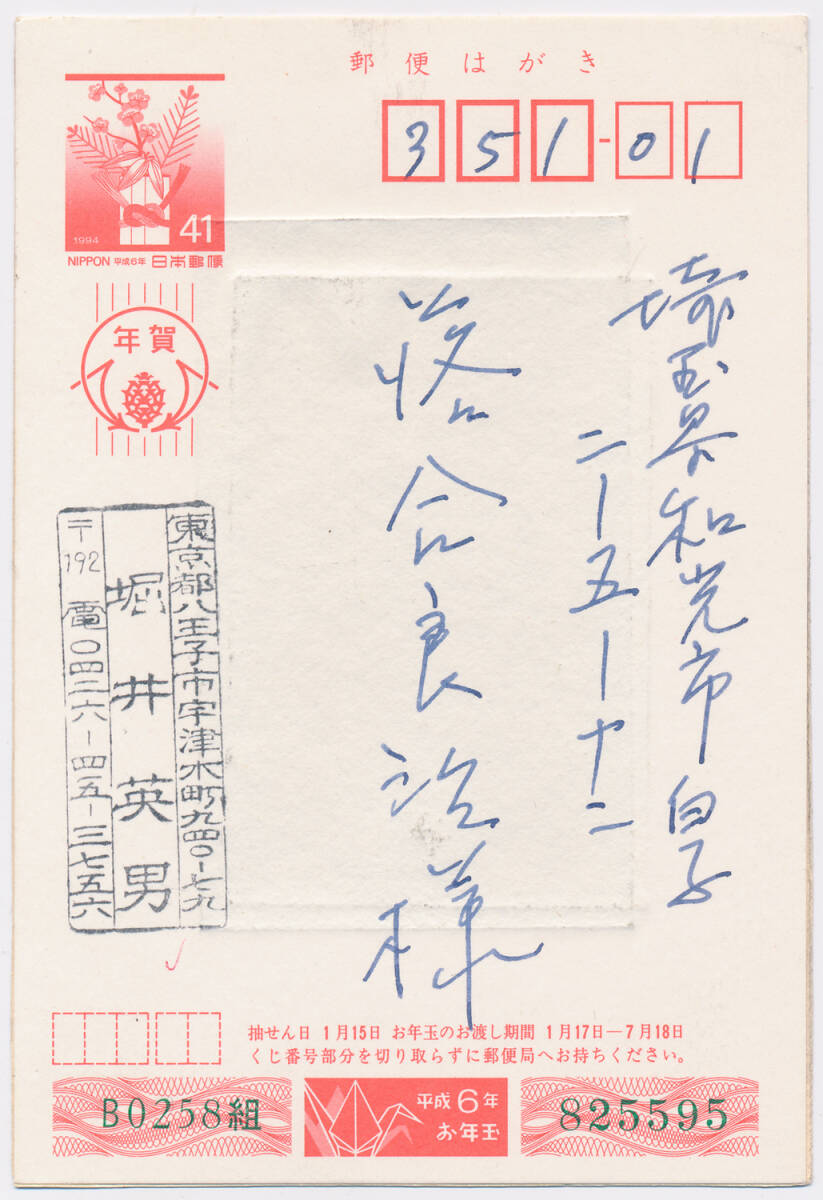 郵便はがき
351-01
41
1994
NIPPON 平成6年 日本郵便
年賀
埼玉県和光市白子
二ー五ー十二
落合良治様
東京都八王子市宇津木町九四〇-七九
堀井英男
〒192 電〇四二六-四五-三七五六
抽せん日 1月15日 お年玉のお渡し期間 1月17日―7月18日
くじ番号部分を切り取らずに郵便局へお持ちください。
B0258組
平成6年
お年玉
825595